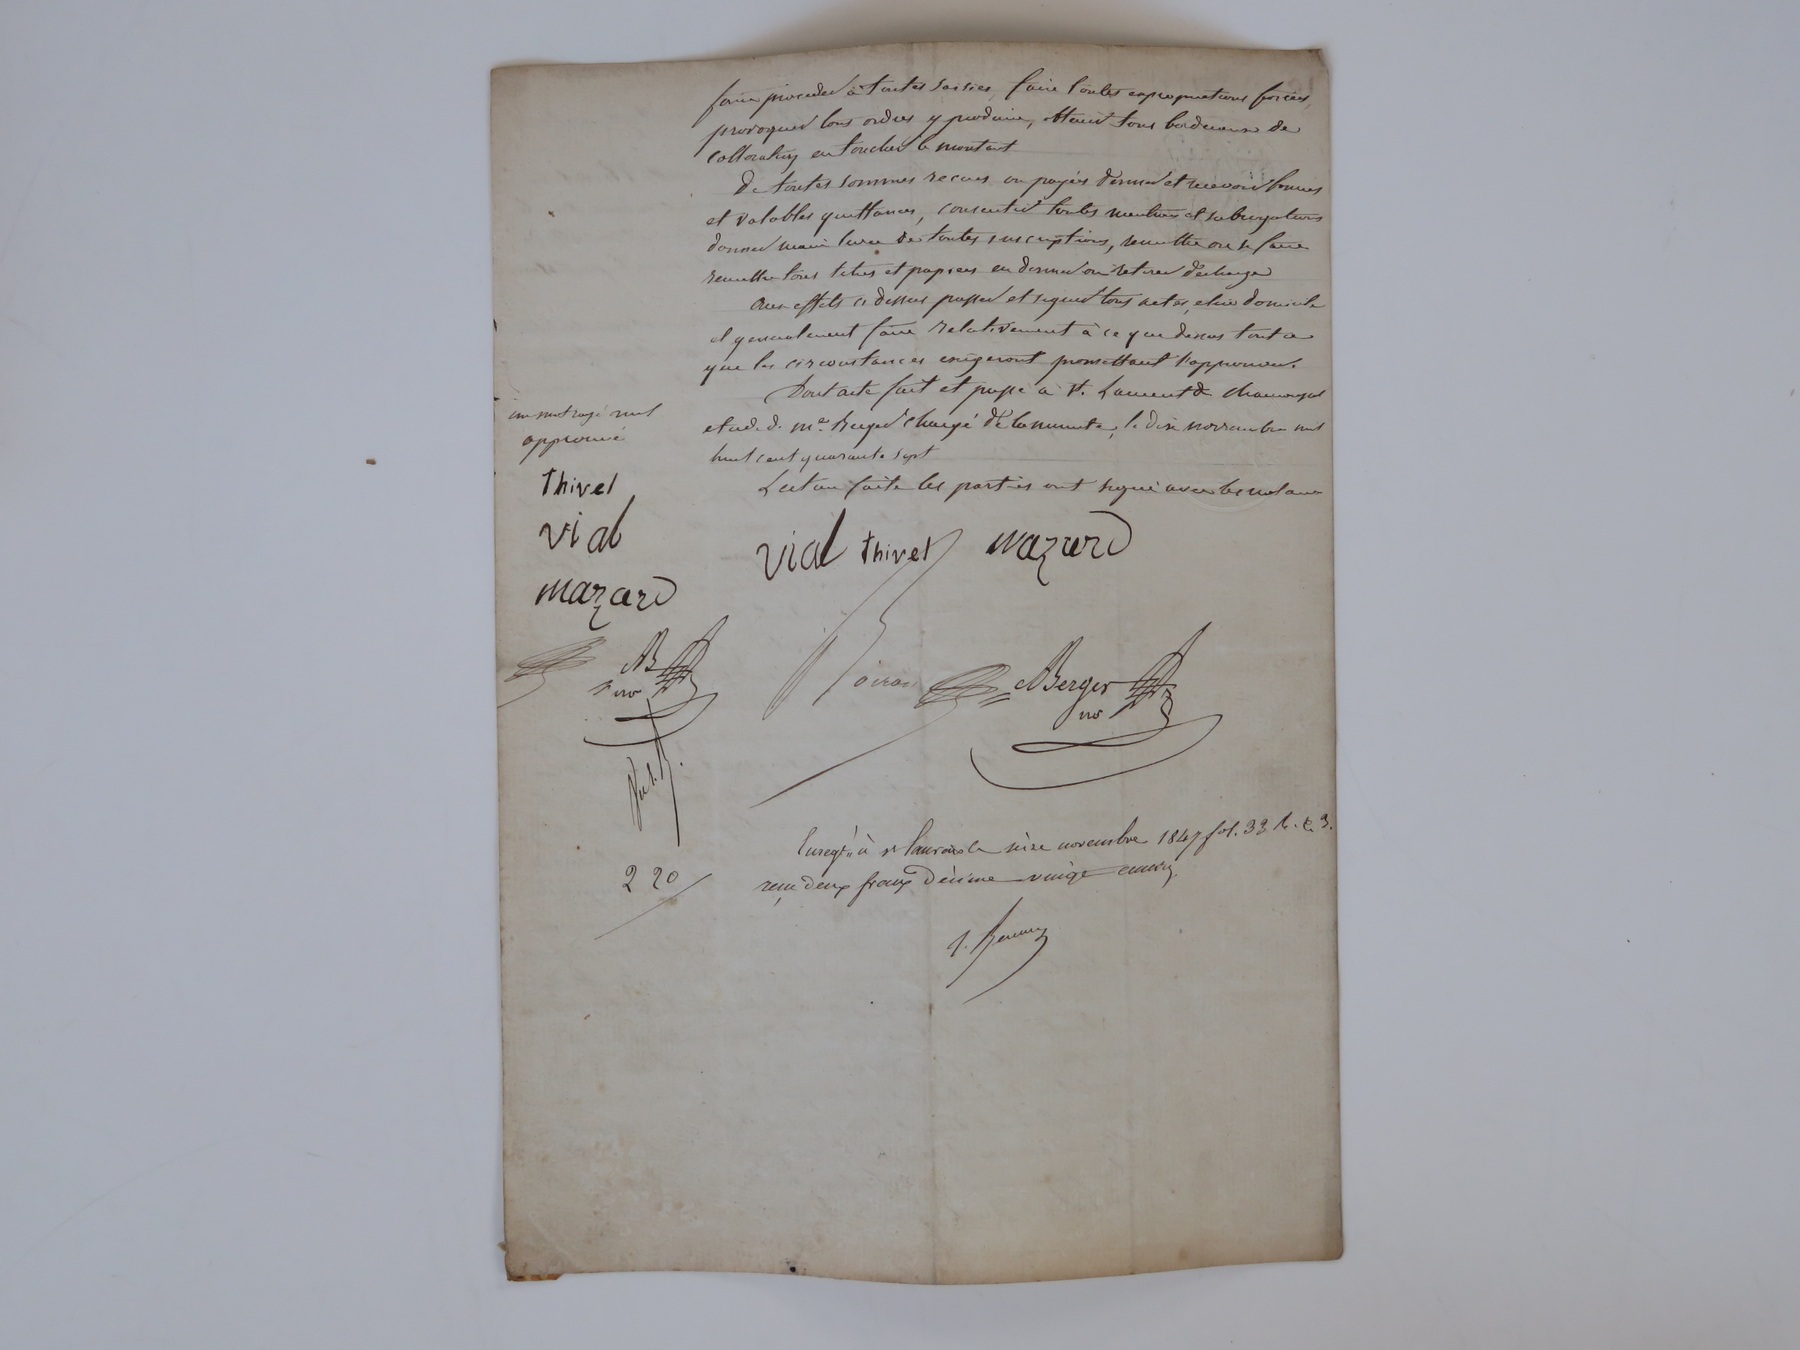 faire procéder à toutes saisies, faire toutes expropriations forcées,
provoquer tous ordres y produire, obtenir tous bordereaux de
collocation en toucher le montant
De toutes sommes recues ou payées donner et recevoir bonnes
et valables quittances, consentir toutes mentions et subrogations
donner main levée de toutes inscriptions, remettre ou se faire
remettre tous titres et papiers en donner ou retirer décharge
Aux effets ci dessus passer et signer tous actes, élire domicile
et generalement faire relativement à ce que dessus tout ce
que les circonstances exigeront promettant l'approuver.
Dont acte fait et passé à St. Laurent de Chamousset
etude de Me. Berger chargé de la minute, le dix novembre mil
huit cent quarante sept
Lecture faite les parties ont signé avec les notaires
un mot rayé nul
approuvé
Thivel
vial
mazard
vial Thivel mazard
AB
nre
ABerger
nre
Enregé à st Laurent le seize novembre 1847 fol. 33 R. C. 3.
reçu deux francs décime vingt centimes
2 20